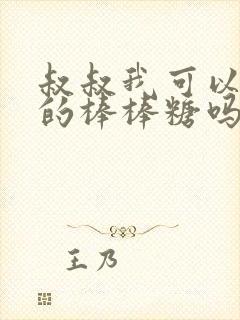 叔叔我可以
的棒棒糖吗
王乃